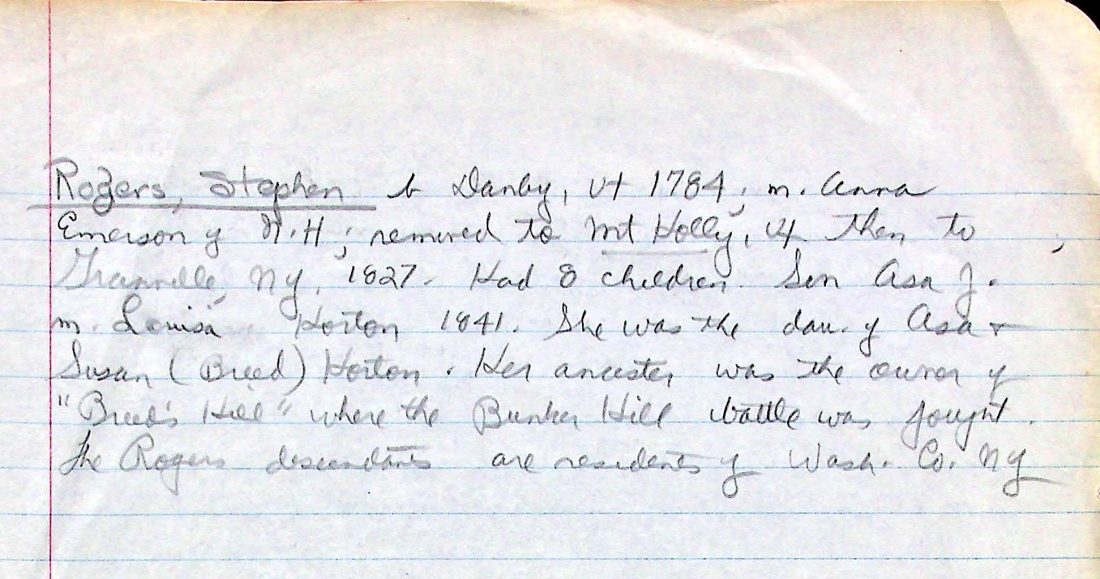 Rogers, Stephen b Danby, Vt 1784; m. Anna
Emerson of N.H.; removed to Mt Holly, Vt then to
Granville, NY, 1827. Had 8 children. Son Asa J.
m. Louisa Horton 1841. She was the dau. of Asa +
Susan (Breed) Horton. Her ancester was the owner of
"Breed's Hill" where the Bunker Hill battle was fought.
The Rogers descendants are residents of Wash. Co. NY